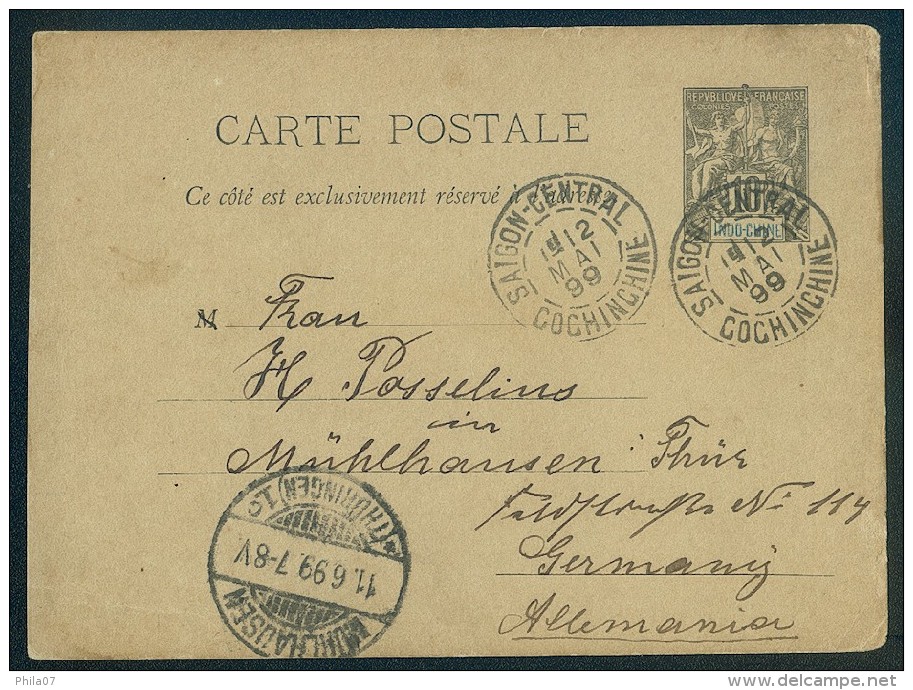 REPVBLIQVE FRANÇAISE
COLONIES POSTES
10
INDO-CHINE
CARTE POSTALE
Ce côté est exclusivement réservé à l'adresse
SAIGON-CENTRAL
12
MAI
99
COCHINCHINE
SAIGON-CENTRAL
12
MAI
99
COCHINCHINE
M Frau
H Posselius
in
Mühlhausen Thür
Feldstraße No 114
Germany
Allemania
MÜHLHAUSEN
11.6.99.7-8V.
*(THÜRINGEN) 1c
Phila07
delcampe.net